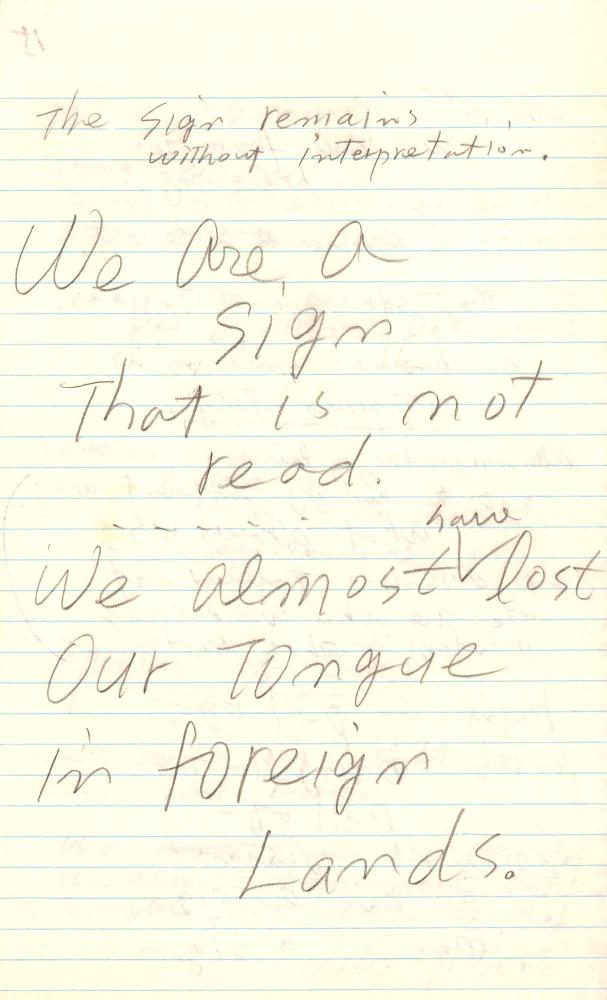 The sign remains
without interpretation.
We Are a
sign
That is not
read.
- - - - - - -
have
We almost lost
Our Tongue
in foreign
Lands.